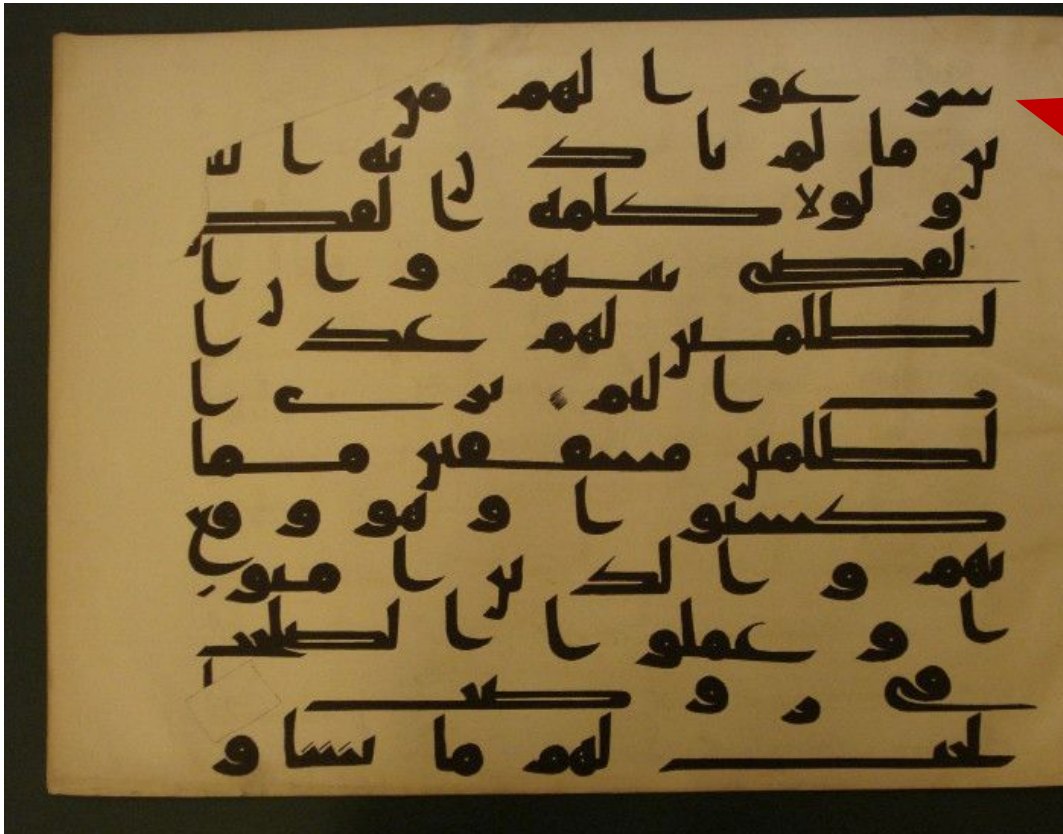 شرعوا لهم من
ين ما لم ياذن به الل
و لولا كلمه الفصل
لقضى بينهم و ان ا
لظلمين لهم عذا
ب اليم ترى ا
لظلمين مشفقين مما
كسبوا و هو وقع
بهم و الذين امنو
ا و عملوا الصلحت
فى روضت ا
لجنت لهم ما يشاو